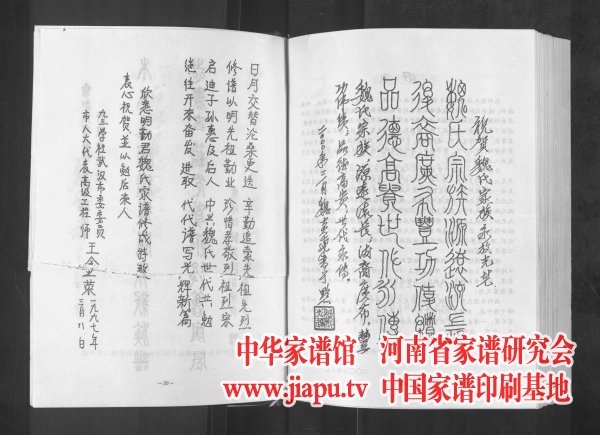 祝贺魏氏家族永放光芒
魏氏宗族源远流长
后裔广布丰功伟绩
品德高贵世代永传
魏氏宗族，源远流长，后裔广布，
功伟绩，品德高贵，世代永传。
日月交替沧桑更迭 辛勤追索先祖先烈
修谱以明先祖勤业 珍惜孝敬烈祖列宗
启迪子孙惠及后人 中兴魏氏世代共勉
继往开来奋发进取 代代谱写光辉新篇
欣悉明勤君魏氏家谱修成特致
衷心祝贺并以勉后来人
九三学社武汉市委委员
市人大代表高级工程师 王
一九九七年
二月八日
－20－
中华家谱馆 河南省家谱研究会
www.jiapu.tv 中国家谱印刷基地